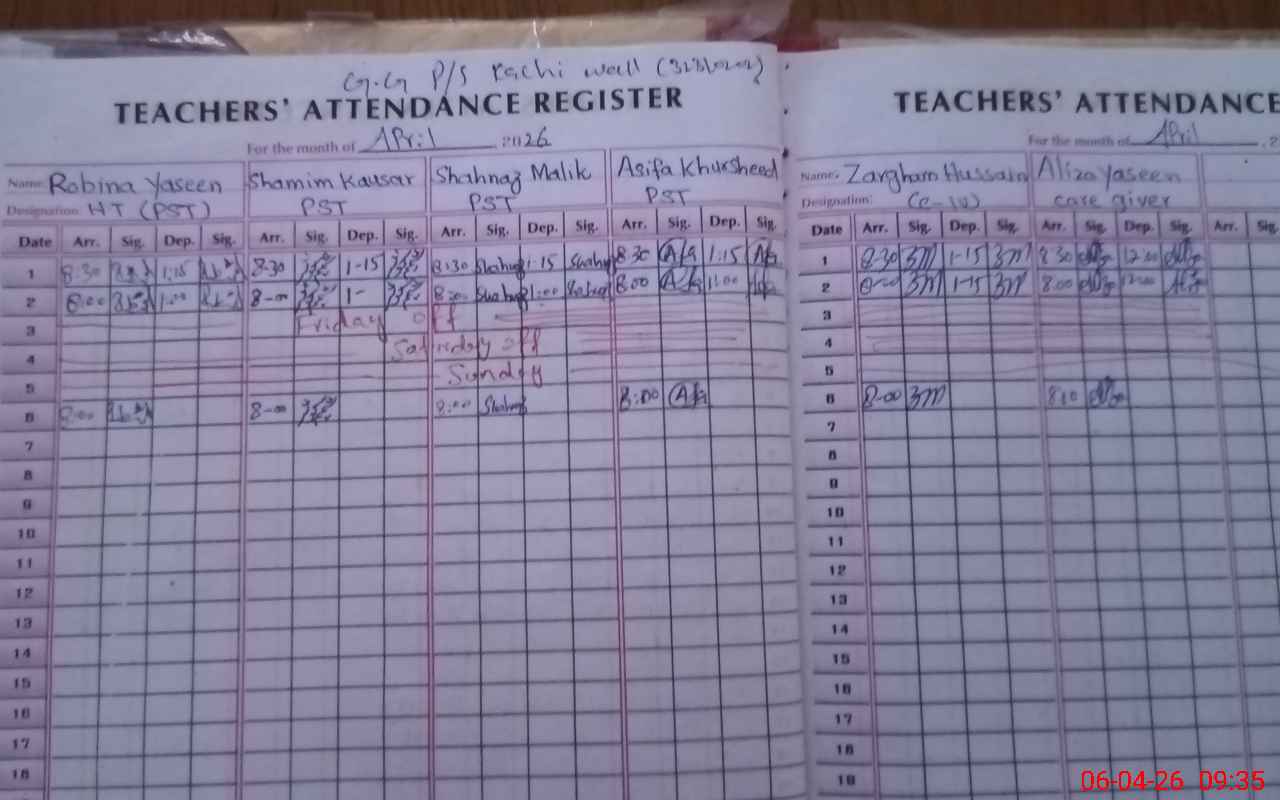 G.G P/S Kachi wall (32310202)
TEACHERS' ATTENDANCE REGISTER
For the month of April 2026
Name: Robina Yaseen Shamim Kausar Shahnaz Malik Asifa Khursheed
Designation: HT (PST) PST PST PST
Date Arr. Sig. Dep. Sig. Arr. Sig. Dep. Sig. Arr. Sig. Dep. Sig. Arr. Sig. Dep. Sig.
1 8:30 1:15 8-30 1-15 8:30 Shahn 1:15 Shahn 8 30 1:15
2 8:00 1:00 8-00 1- 8:00 Shahn 1:00 8:00 1:00
3 Friday off
4 Saturday off
5 Sunday
6 8:00 8-00 8:00 Shahn 8:00
7
8
9
10
11
12
13
14
15
16
17
18
TEACHERS' ATTENDANCE
For the month of April , 2
Name: Zargham Hussain Aliza Yaseen
Designation: care giver
Date Arr. Sig. Dep. Sig. Arr. Sig. Dep. Sig. Arr. Sig.
1 8-30 1-15 8 30 12:00
2 8-00 1-15 8:00 12:00
3
4
5
6 8-00 8:00
7
8
9
10
11
12
13
14
15
16
17
18
19
06-04-26 09:35